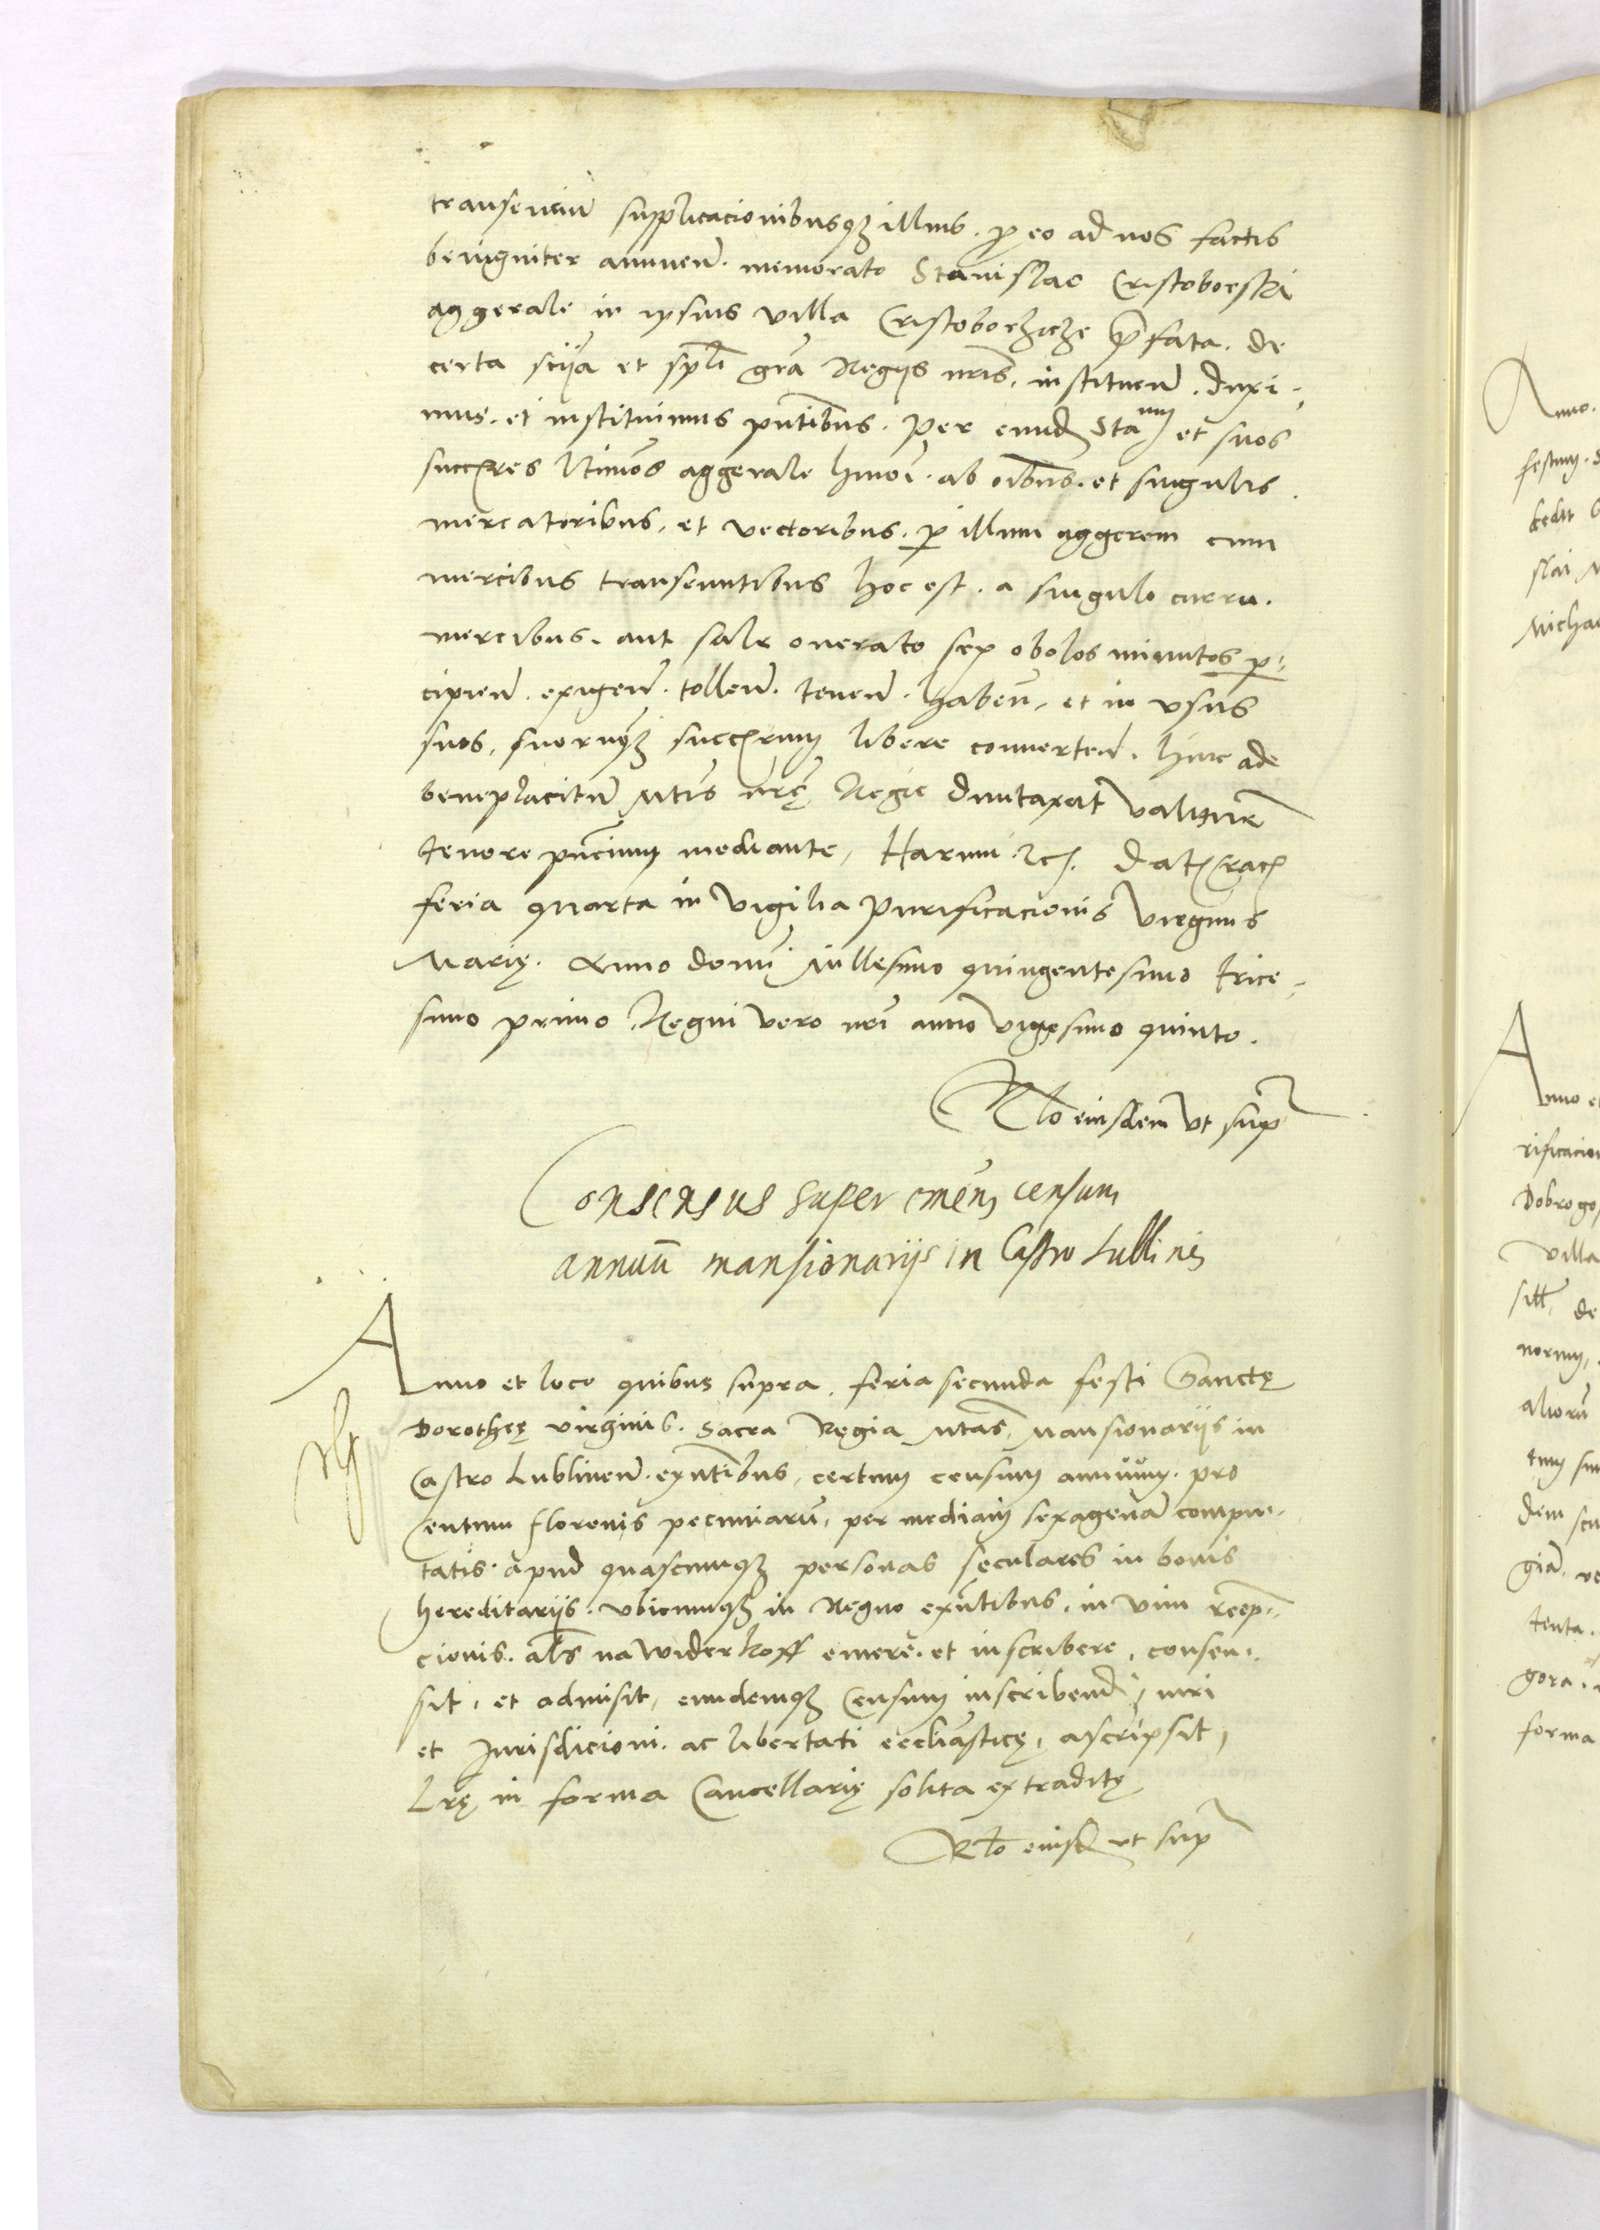 transeuciũ supplicacionibusqʒ illius . p eo ad nos factis
benigniter annuen̄ . memorato Stanislao Cristoborski
aggerale in ipsius villa Cristoborzicze p̄fata . de
certa sciīa et spl̄i gr̄a Regijs nr̄is , instituen̄ . duxi-
mus . et instituimus pn̄tibus . Per eund Sta num et suos
succr̄es lt̄imos aggerale hm̄oi . ab oībus . et singulis .
mercatoribus , et vectoribus . p illum aggerem cum
mercibus transeuntibus hoc est . a singulo curru .
mercibus . aut sale onerato sex obolos minutos p-
cipien̄ . exigen̄ . tollen̄ . tenen̄ . haben̄ . et in vsus
suos , suorumqʒ succr̄um libere conuerten̄ . hinc ad
beneplacitũ Mt̄is nr̄ę Regie duntaxat valitur̄
tenore pn̄cium mediante , Harum . Dat Crac
feria quarta in vigilia Purificacionis virginis
Marię . Anno domī Millesimo quingentesimo trice-
simo primo . Regni vero nr̄i anno vigesimo quinto .
Rl̄o eiusdem vt sup
Consensus super emen̄ censum
annuũ mansionarijs in Castro Lublineñ
Anno et loco quibus supra . feria secunda festi Sanctę
Dorotheę virginis . Sacra Regia Mt̄as , Mansionarijs in
Castro Lublinen̄ . exn̄tibus , certum censum annuum . pro
Centum florenis pecuniarũ , per mediam sexagenã compu-
tatis . apud quascumqʒ personas seculares in bonis
hereditarijs . vbicumqʒ in Regno exn̄tibus . in vim reemp-
cionis . als̄ na widerkoff emere . et inscribere , consen-
sit , et admisit , eundemqʒ Censum inscribend , iuri
et Jurisdicioni . ac libertati eccliasticę , ascripsit ,
Lr̄ę in forma Cancellarię solita extraditę
Rl̄o eiusd vt sup
Anno .
festum .
dedit
slai
Micha
Anno et
rificacio
Dobrogo
villa
de
norum
aliorũ
tenta .
gora .
forma